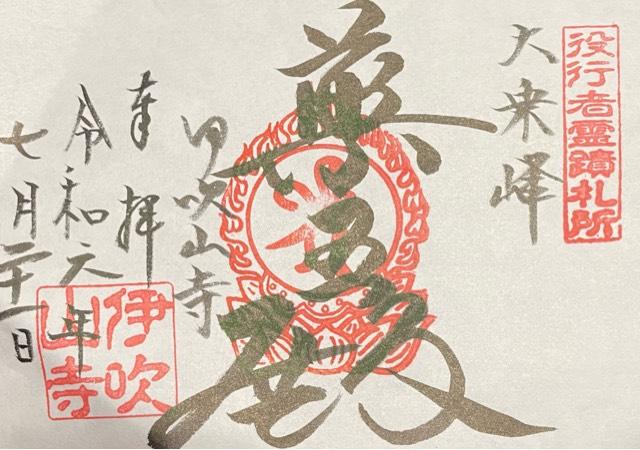 役行者霊蹟札所
大乗峰
薬殿
伊吹山寺
奉拝
令和元年
七月二十一日
伊吹
山寺